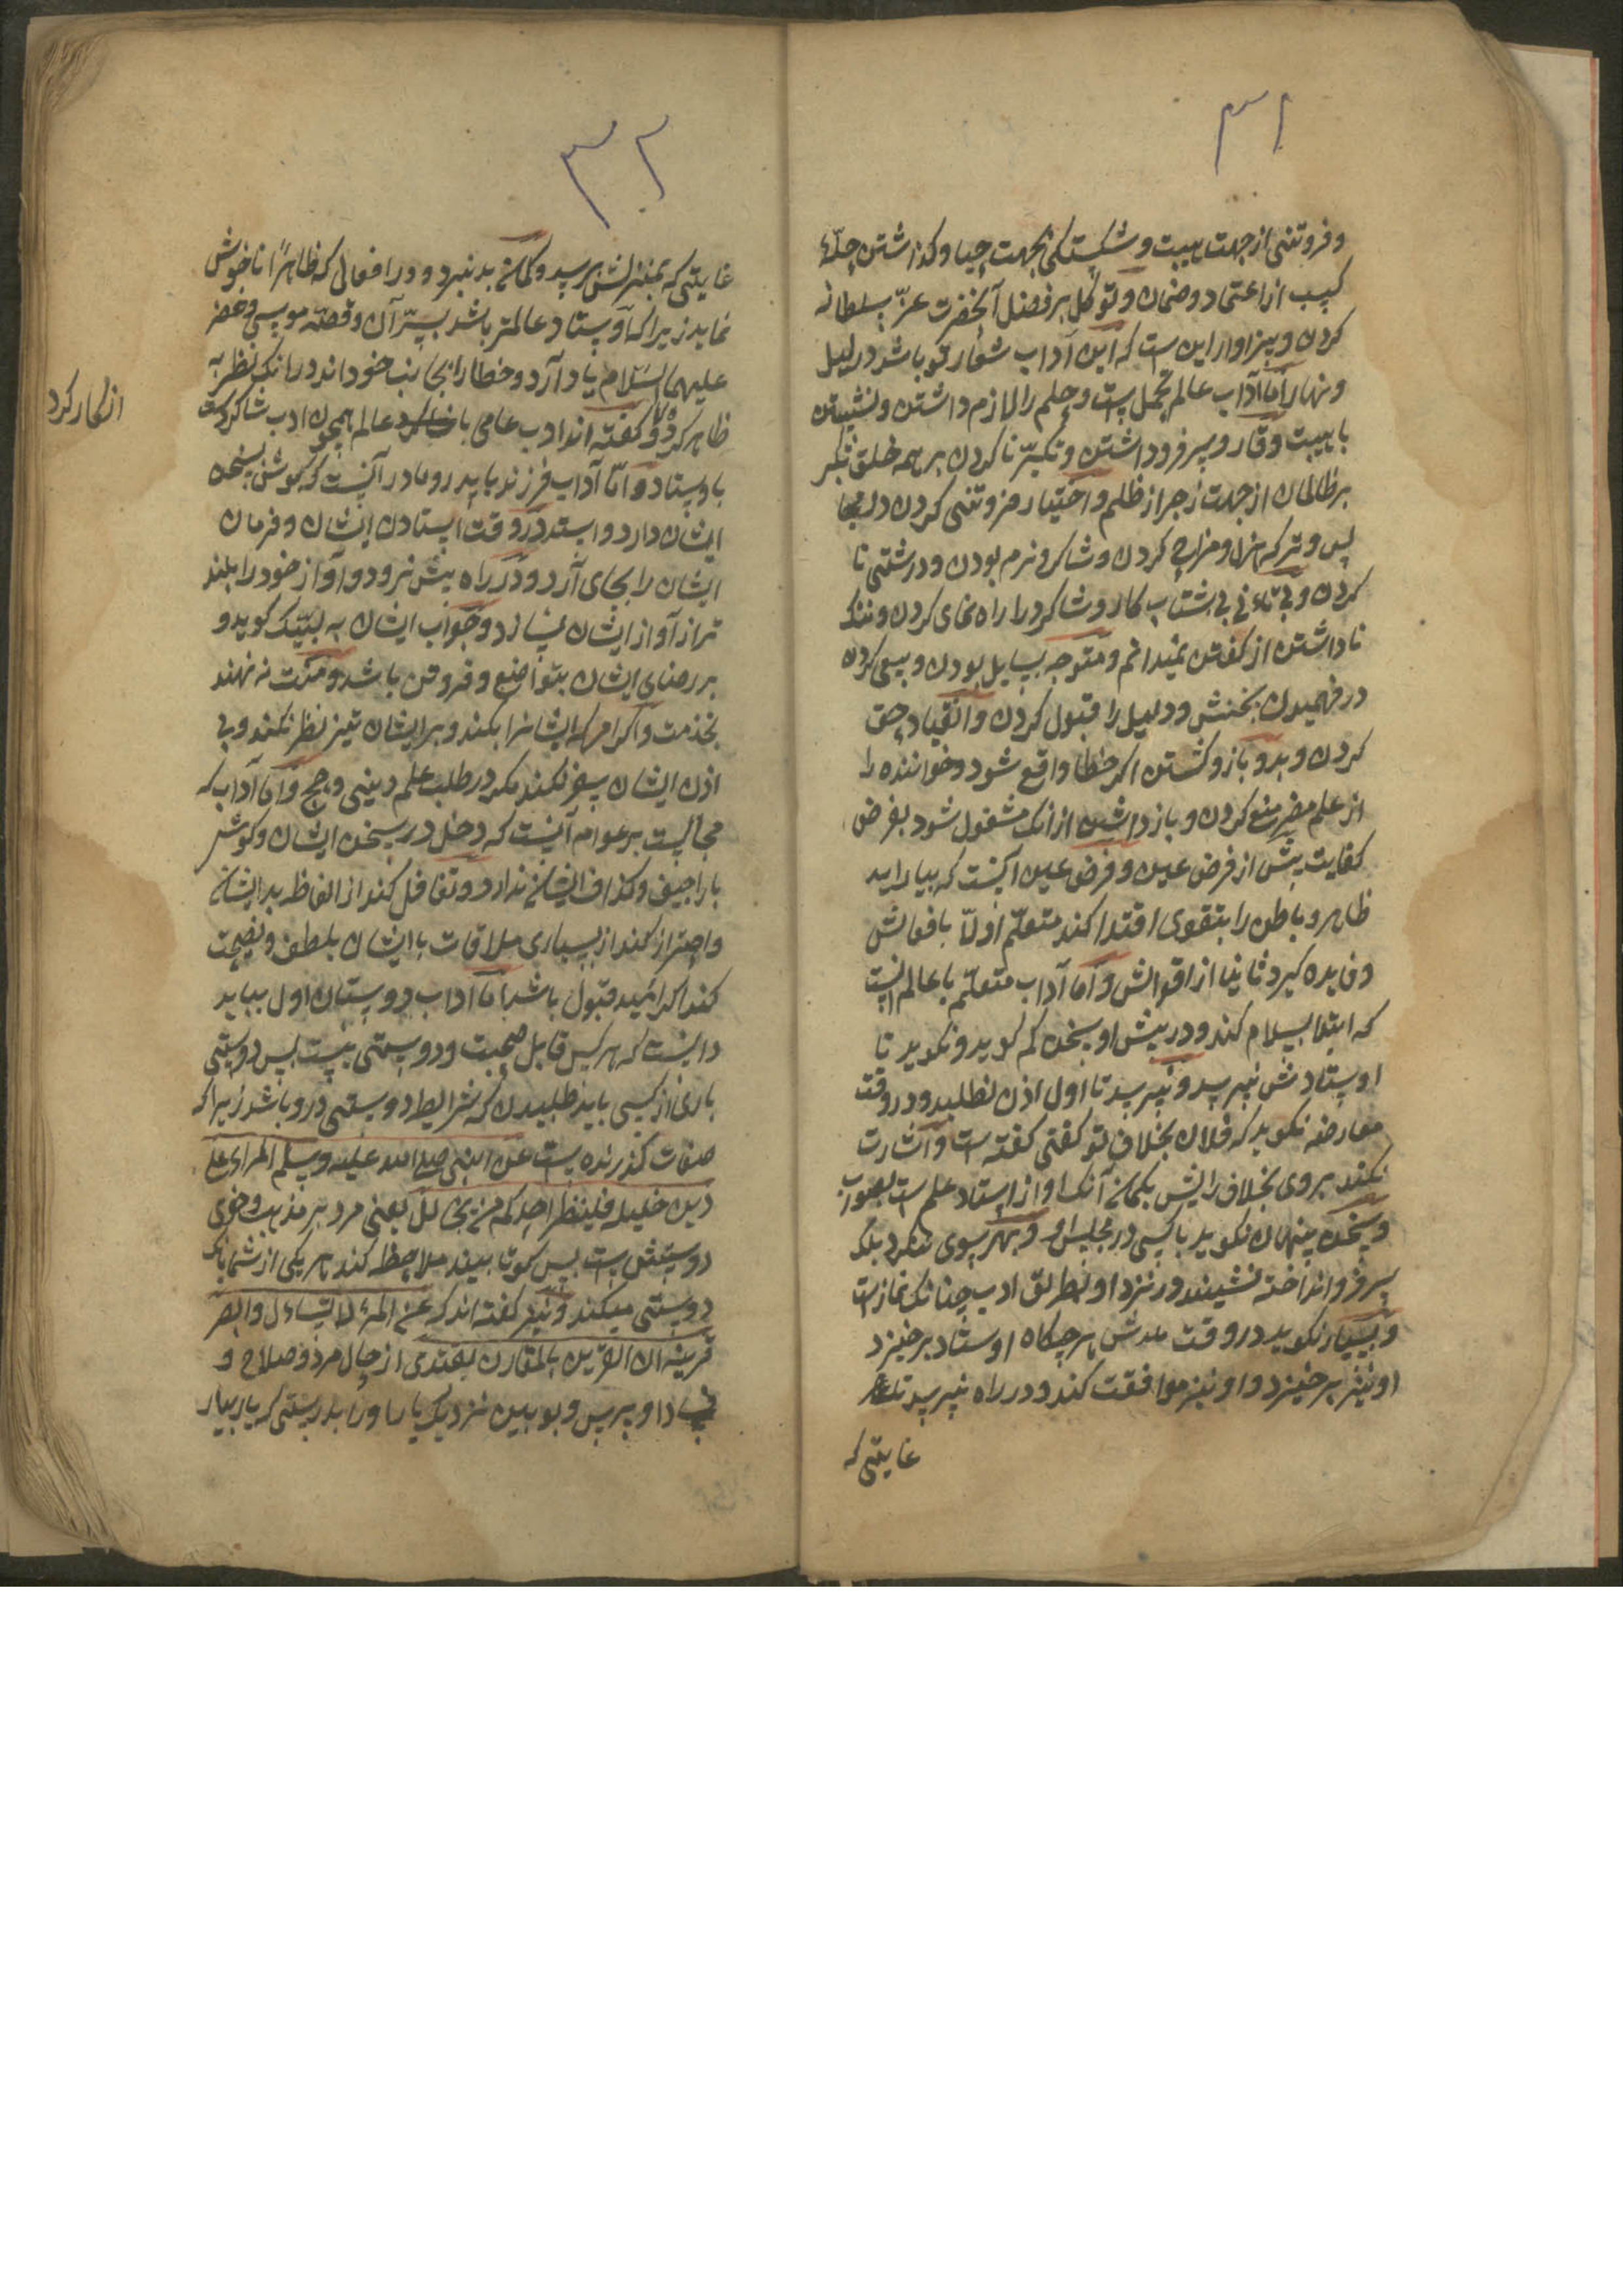 ۳۱
و فروتنی از جهت هیبت و شکستکی بجهت حیا و کذاشتن حیلهٔ
کسب از اعتماد و ضمان و توکل بر فضل آنحضرت عزّ سلطانه
کردن و سزاوار این ست که این آداب شعار تو باشد در لیل
و نهار اما آداب عالم تحمل ست و حلم را لازم داشتن و نشستن
با هیبت و قار و سر فرود داشتن و تکبّر نا کردن بر همه خلق مکر
بر ظالمان از جهت زجر از ظلم و اختیار فروتنی کردن در مجا
لس و ترک هزل و مزاح کردن و شاکرد نرم بودن و درشتی نا
کردن و بی شتاب کار و شاکرد را راه نمای کردن و ننک
نا داشتن از کفتن نمیدانم و متوجه بسایل بودن و سعی کردن
در فهمیدن سخنش و دلیل را قبول کردن و انقیاد حق
کردن و بدو باز و کشتن اکر خطا واقع شود و خواننده را
از علم مضر منع کردن و باز داشتن از انک مشغول شود بفرض
کفایت پیش از فرض عین و فرض عین آنست که بیاراید
ظاهر و باطن را بتقوی اقتدا کند متعلّم اولاً بافعالش
و فایده کیرد ثانیا از اقوالش و اما آداب متعلّم با عالم آنست
که ابتدا بسلام کند و در پیش او سخن کم کوید و نکوید تا
اوستادش نپرسد و نپرسد تا اول اذن نطلبد و در وقت
معارضه نکوید که فلان بخلاف تو کفتی کفته ست و اشارت
نکند بر وی بخلاف رایش بکمان آنک او از استاد علم ست بصواب
و سخن پنهان نکوید با کسی در مجلس او و بهر سوی ننکرد بلک
سر فرو انداخته نشیند در نزد او بطریق ادب چنانک نماز ست
و بسیار نکوید در وقت ملالش هر چکاه اوستاد برخیزد
او نیز برخیزد و او نیز موافقت کند و در راه نپرسد تا
غایتی که
۳۲
غایتی که بمنزلش برسد و کمان بد نبرد و در افعال که ظاهراً ناخوش
نماید زیرا که اوستاد عالمتر باشد بسرّ آن و قصّه موسی و خضر
علیهما السّلام یاد آرد و خطا را بجانب خود داند در انک نظر به
ظاهر کرد و کفته اند ادب عامی با عالم همچون ادب شاکردست
باوستاد و امّا آداب فرزند با پدر و مادر آنست که کوش بسخن
ایشان دارد و ایستد در وقت ایستادن ایشان و فرمان
ایشان را بجای آرد و در راه پیش نرود و آواز خود را بلند
تر از آواز ایشان نسازد و جواب ایشان به لبّیک کوید و
بر رضای ایشان بتواضع و فروتن باشد و منّت نه نهند
بخدمت و اکرام که ایشانرا بکند و بر ایشان تیز نظر نکند و بی
اذن ایشان سفر نکند مکر در طلب علم دینی و حج و اما آداب که
مجالست بر عوام آنست که دخل در سخن ایشان و کوش
باراجیف و کذاف ایشان ندارد و تغافل کند از الفاظ بد ایشان
و احتراز کند از بسیاری ملاقات با ایشان بلطف و نصیحت
کند اکر امید قبول باشد اما آداب دوستان اول بباید
دانست که هر کس قابل صحبت و دوستی نیست پس دوستی
باری از کسی باید طلبیدن که شرایط دوستی درو باشد زیرا که
صفات کذرنده ست عن النبی صلی الله علیه و سلم المراء علی
دین خلیله فلینظر احدکم من یخالل یعنی مرد بر مذهب و خوی
دوستش ست پس کو تا ببیند ملاحظه کند هر یکی از شما بانک
دوستی میکند و نیز کفته اند که عن المرء لا تساءل و ابصر
قرینه ان القرین بالمقارن یقتدی از حال مرد و صلاح و
فساد او مپرس و بو بین نزدیک یار او را بدرستی که یار بیار
انکار کرد